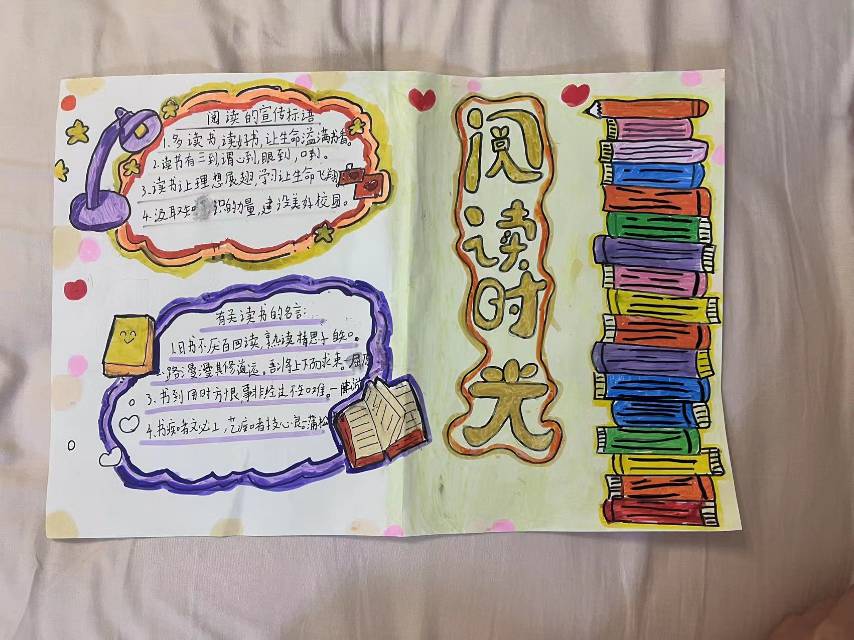 阅读的宣传标语
1.多读书,读好书,让生命溢满书香。
2.读书有三到谓心到,眼到,口到。
3.读书让理想展翅,学习让生命飞翔
4.汲取知识的力量,建设美好校园。
有关读书的名言:
1.旧书不厌百回读,熟读精思子自知。
路漫漫其修远兮,吾将上下而求索。屈原
3.书到用时方恨事非经过不知难。一陆游
4.书痴者文必工,艺痴者技必良一蒲松
阅读时光